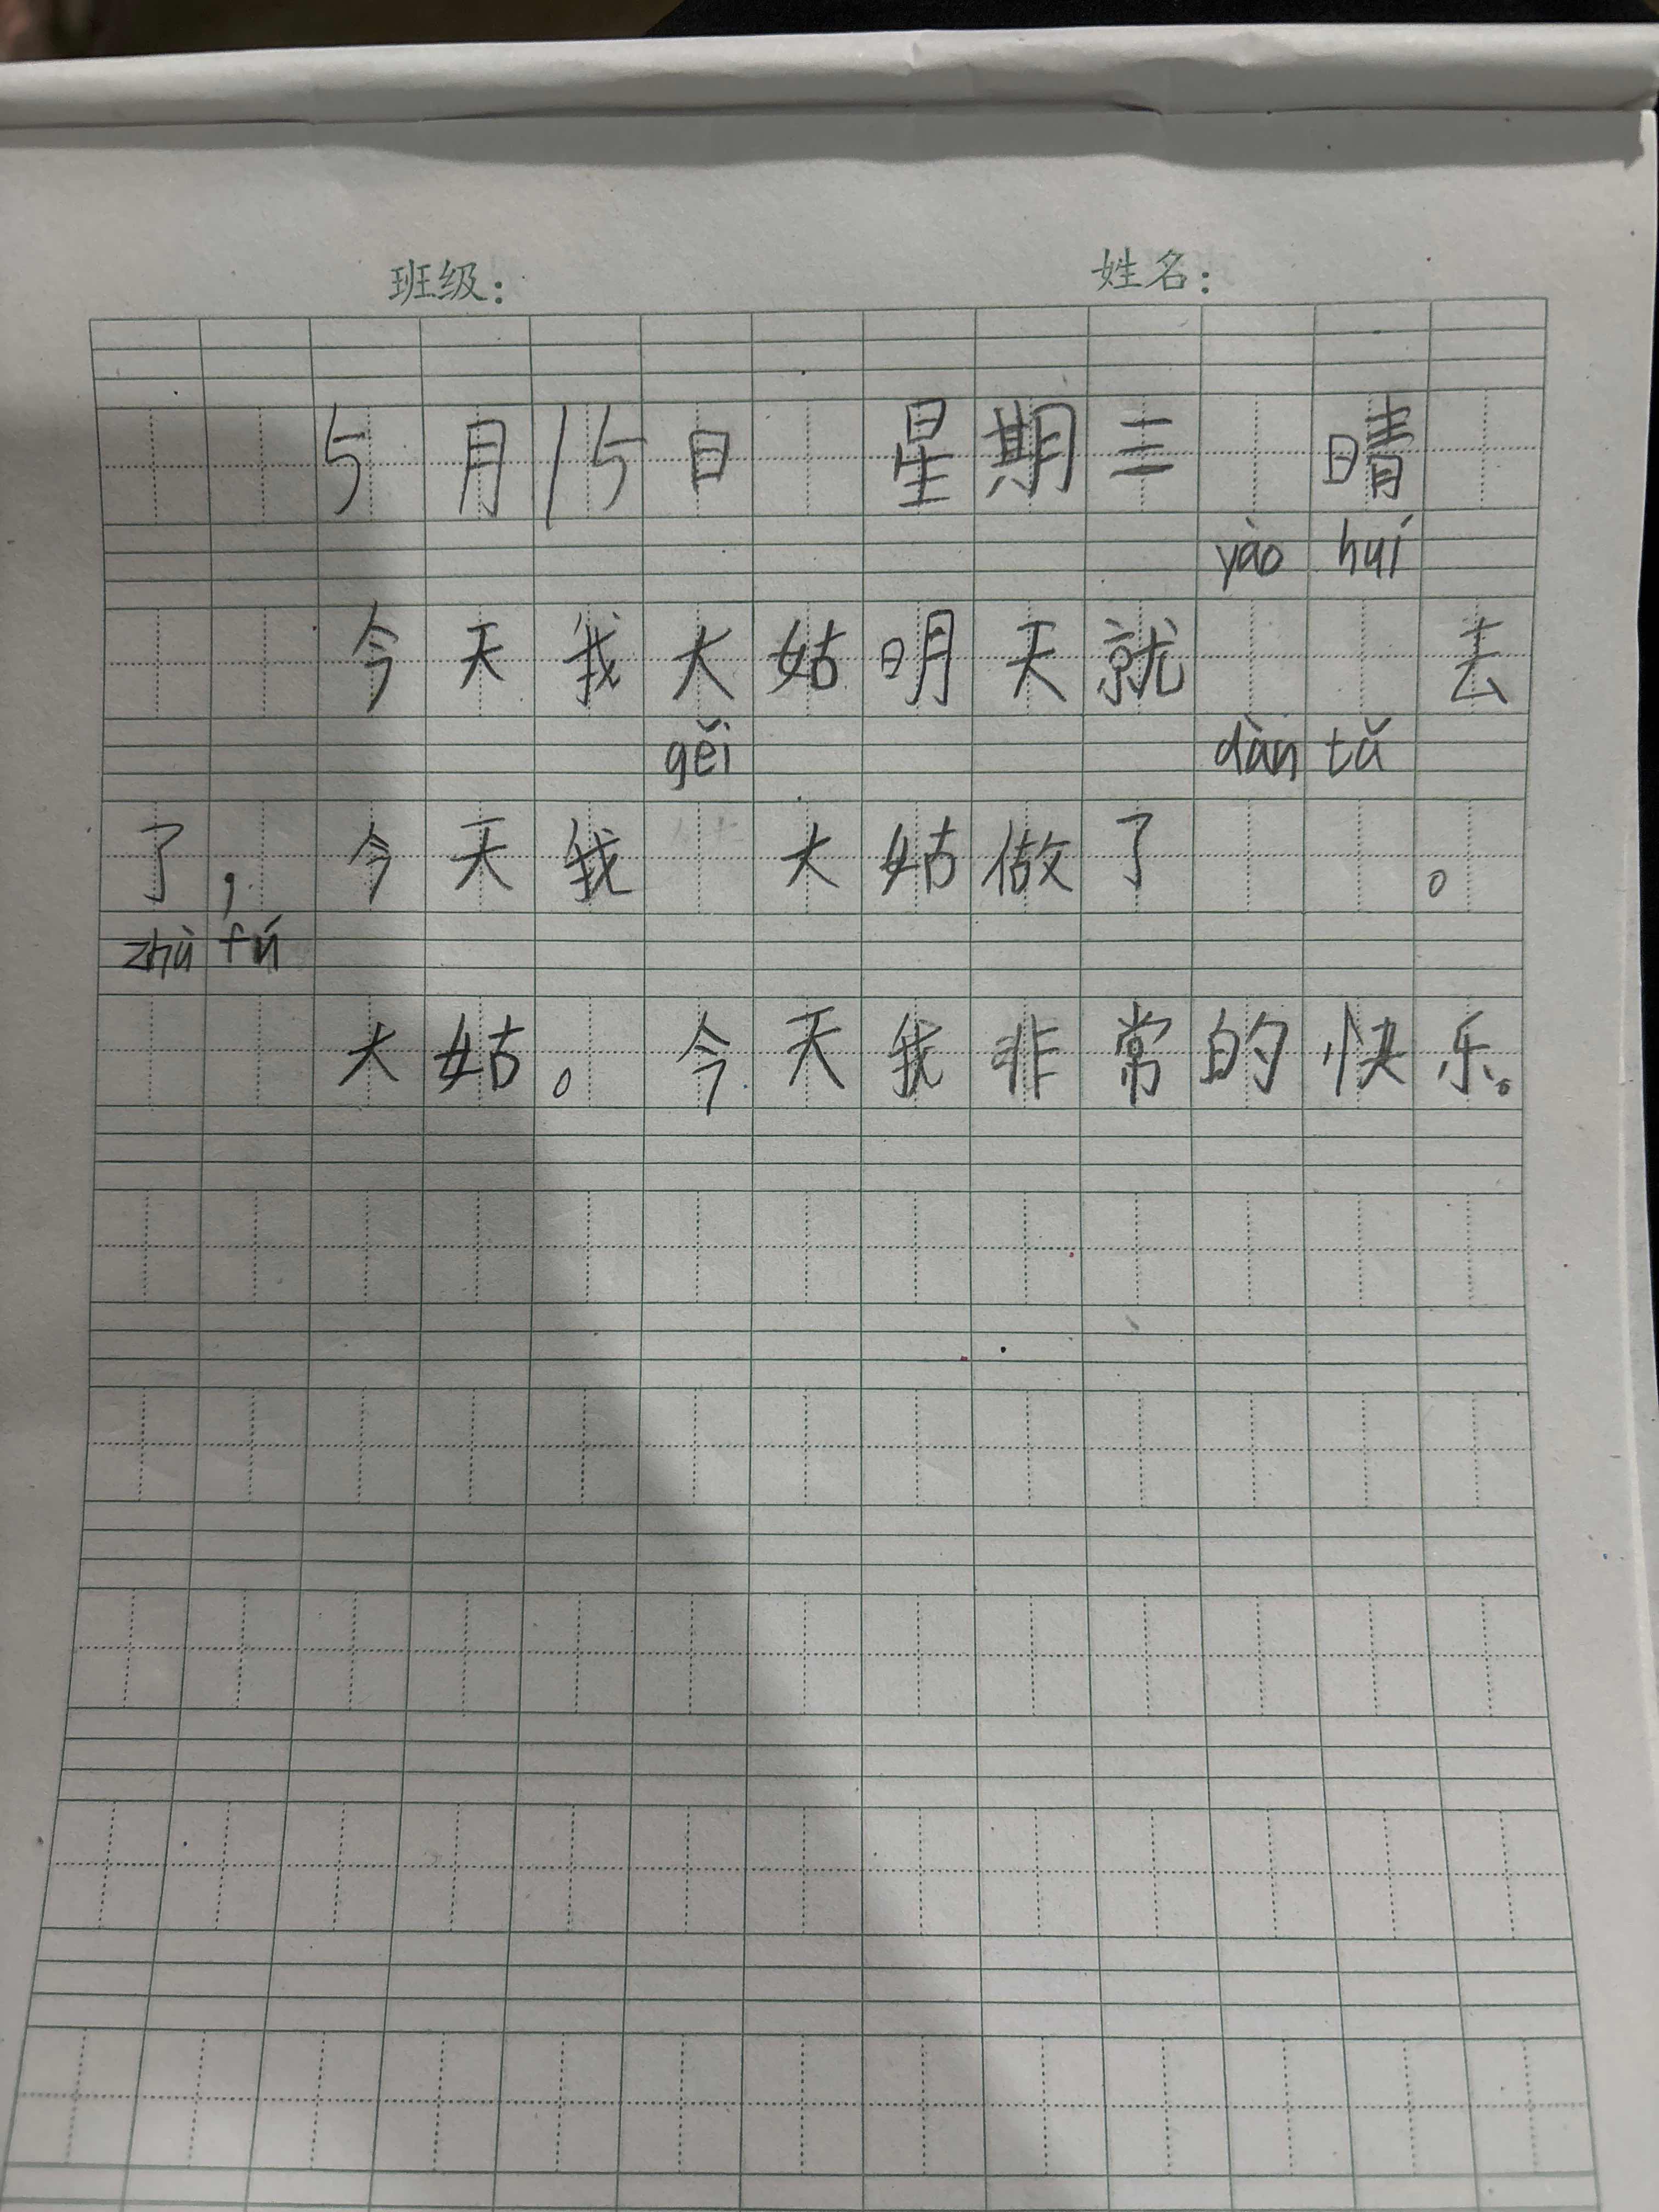 班级： 姓名：
5月15日 星期三 晴
yào huí
今天我大姑明天就 去
gěi dàn tǎ
了，今天我 大姑做了 。
zhù fú
大姑。今天我非常的快乐。